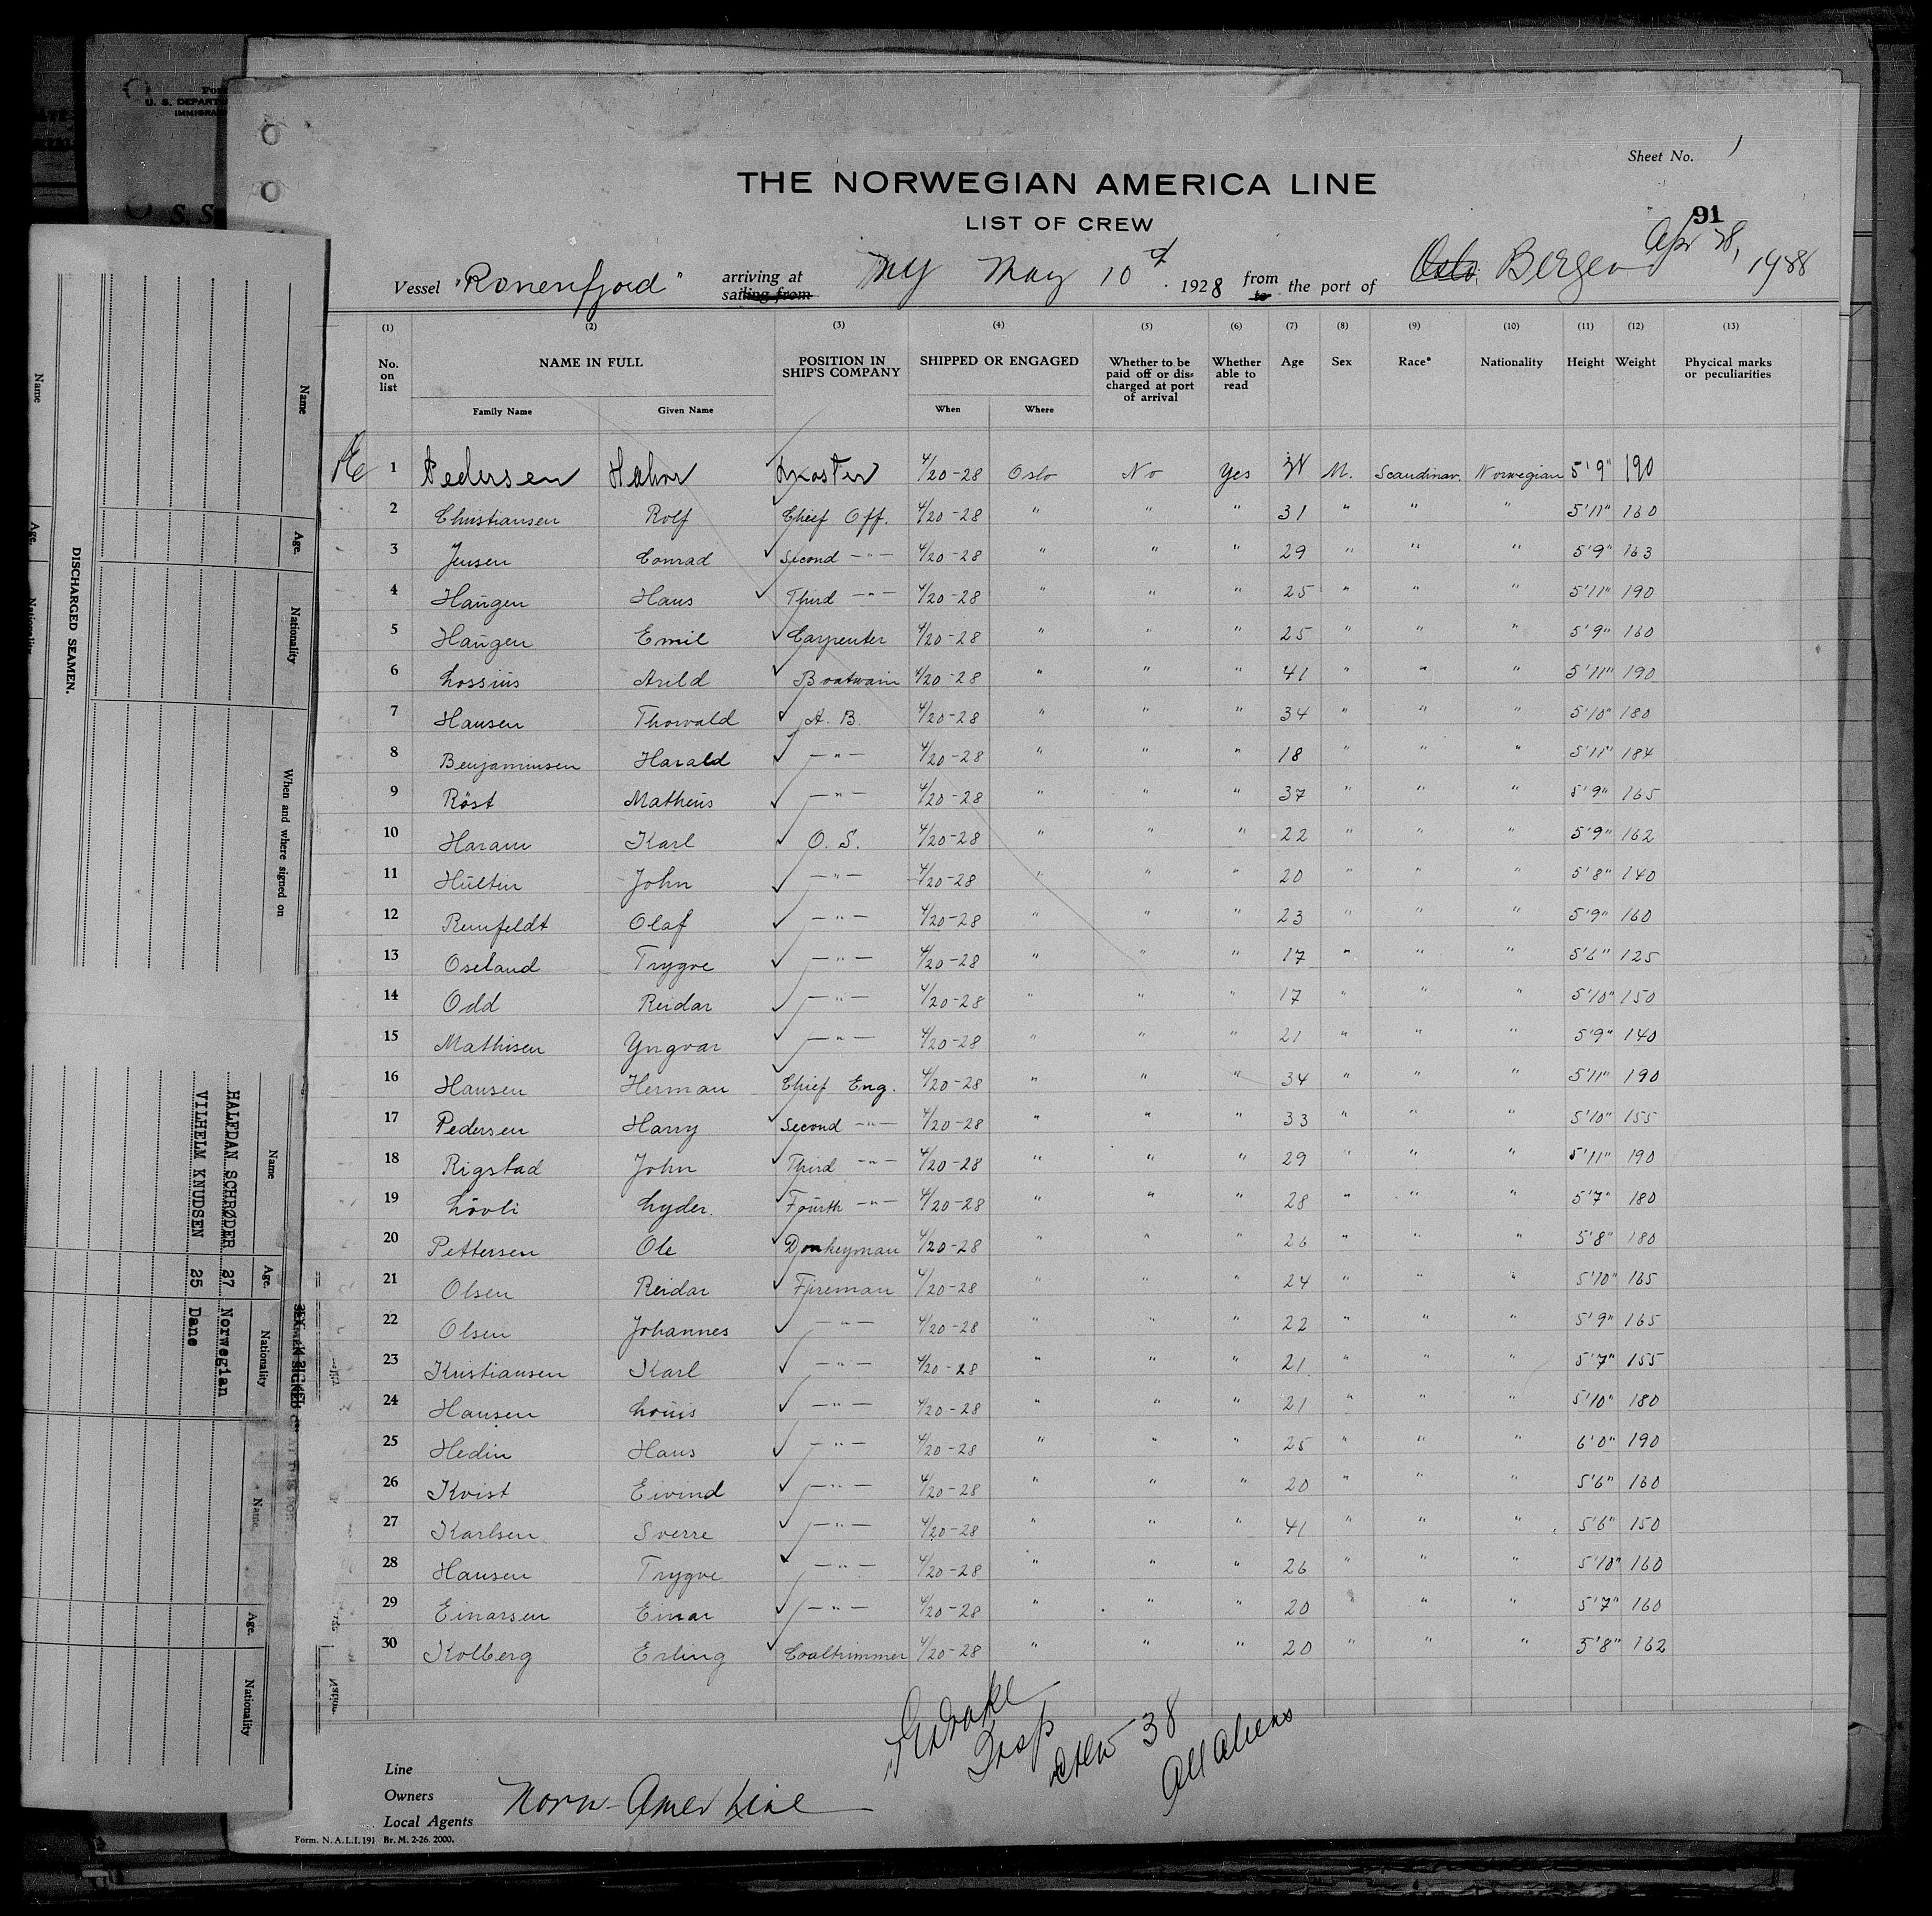 Sheet No. 1
THE NORWEGIAN AMERICA LINE
LIST OF CREW
91
Apr 28, 1928
Vessel "Ronenfjord" arriving at sailing from NY May 10th 1928 from to the port of Oslo Bergen
(1) (2) (3) (4) (5) (6) (7) (8) (9) (10) (11) (12) (13)
No. on list NAME IN FULL POSITION IN SHIP'S COMPANY SHIPPED OR ENGAGED Whether to be paid off or dis= charged at port of arrival Whether able to read Age Sex Race* Nationality Height Weight Phycical marks or peculiarities
Family Name Given Name When Where
1 Pedersen Halvor Master 4/20-28 Oslo No Yes M. Scandinav. Norwegian 5'9" 190
2 Christiansen Rolf Chief Off. 4/20-28 " " " 31 " " " 5'11" 160
3 Jensen Conrad Second -"- 4/20-28 " " " 29 " " " 5'9" 163
4 Haugen Hans Third -"- 4/20-28 " " " 25 " " 5'11" 190
5 Haugen Emil Carpenter 4/20-28 " " " 25 " " " 5'9" 160
6 Lossius Arild Boatwain 4/20-28 " " " 41 " " " 5'11" 190
7 Hansen Thorvald A. B. 4/20-28 " " " 34 " " " 5'10" 180
8 Benjaminsen Harald -"- 4/20-28 " " " 18 " " " 5'11" 184
9 Röst Matheus -"- 4/20-28 " " " 37 " " " 5'9" 165
10 Haram Karl O. S. 4/20-28 " " " 22 " " " 5'9" 162
11 Hultin John -"- 4/20-28 " " " 20 " " " 5'8" 140
12 Remfeldt Olaf -"- 4/20-28 " " " 23 " " " 5'9" 160
13 Oseland Trygve -"- 4/20-28 " " " 17 " " " 5'6" 125
14 Odd Reidar -"- 4/20-28 " " " 17 " " " 5'10" 150
15 Mathisen Yngvar -"- 4/20-28 " " " 21 " " " 5'9" 140
16 Hansen Herman Chief Eng. 4/20-28 " " " 34 " " " 5'11" 190
17 Pedersen Harry Second -"- 4/20-28 " " " 33 " " " 5'10" 155
18 Rigstad John Third -"- 4/20-28 " " " 29 " " " 5'11" 190
19 Lövli Lyder. Fourth -"- 4/20-28 " " " 28 " " " 5'7" 180
20 Pettersen Ole Donkeyman 4/20-28 " " " 26 " " " 5'8" 180
21 Olsen Reidar Fireman 4/20-28 " " " 24 " " " 5'10" 165
22 Olsen Johannes -"- 4/20-28 " " " 22 " " " 5'9" 165
23 Kristiansen Karl -"- 4/20-28 " " " 21 " " " 5'7" 155
24 Hansen Louis -"- 4/20-28 " " " 21 " " " 5'10" 180
25 Hedin Hans -"- 4/20-28 " " " 25 " " " 6'0" 190
26 Kvist Eivind -"- 4/20-28 " " " 20 " " " 5'6" 160
27 Karlsen Sverre -"- 4/20-28 " " " 41 " " " 5'6" 150
28 Hansen Trygve -"- 4/20-28 " " " 26 " " " 5'10" 160
29 Einarsen Einar -"- 4/20-28 " " " 20 " " " 5'7" 160
30 Kolberg Erling Coaltrimmer 4/20-28 " " " 20 " " " 5'8" 162
Insp
Crew 38
All aliens
Line
Owners
Local Agents
Norw-Amer Line
Form. N. A. L. I. 191 Br. M. 2-26. 2000.
DISCHARGED SEAMEN.
Name Age. Nationality When and where signed on
Name Age. Nationality
HALFDAN SCHRØDER 27 Norwegian
VILHELM KNUDSEN 25 Dane
Name Age. Nationality
Name Age. Nationality
U. S. DEPART
IMMIGRA
S. S